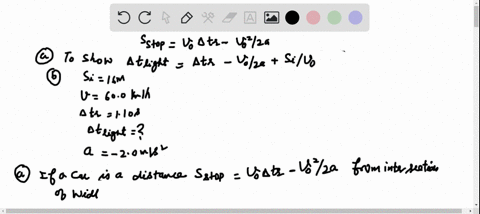 S_stop = V₀ Δtr - V₀²/2a
(a) To show Δt_light = Δtr - V₀/2a + Si/V₀
(b) Si = 16m
V = 60.0 km/h
Δtr = 1.10s
Δt_light = ?
a = -2.0 m/s²
(a) If a Car is a distance S_stop = V₀Δtr - V₀²/2a from intersection
of Width